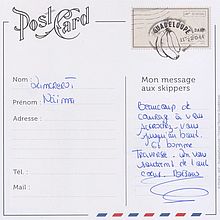 Post Card
GUADELOUPE
Nom :
Prénom : Naima
Adresse :
Tél. :
Mail :
Mon message
aux skippers
Beaucoup de
courage à vous
accrochez-vous
jusqu'au bout.
et bonne
Traversée. on vous
soutient de tout
coeur. Bisous